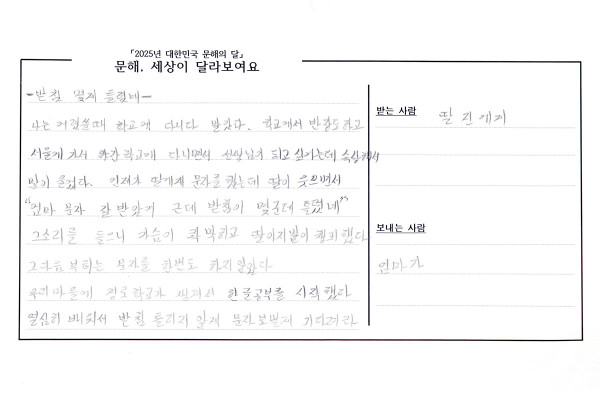 「2025년 대한민국 문해의 달」
문해, 세상이 달라보여요
-받침 몇개 틀렸네-
나는 어렸을때 학교에 다니다 말았다. 학교에서 반장도하고
서울에 가서 야간학교에 다니면서 선생님도 되고 싶어는데 속상해서
많이 울었다. 언젠가 딸에게 문자를 했는데 딸이 웃으면서
"엄마 문자 잘받았어 근데 받침이 몇군데 틀렸네"
그소리를 들으니 가슴이 콱 막히고 딸이지만 창피했다
그다음부터는 문자를 한번도 하지 않았다
우리마을에 경로학교가 생겨서 한글공부를 시작했다
열심히 배워서 받침 틀리지 않게 문자보낼게 기다려라
받는 사람
딸 진에게
보내는 사람
엄마가